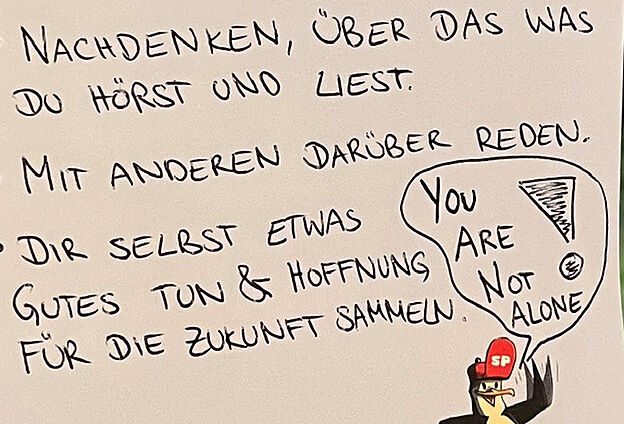 NACHDENKEN, ÜBER DAS WAS
DU HÖRST UND LIEST.
MIT ANDEREN DARÜBER REDEN.
DIR SELBST ETWAS
GUTES TUN & HOFFNUNG
FÜR DIE ZUKUNFT SAMMELN.
YOU
ARE
NOT
ALONE
SP